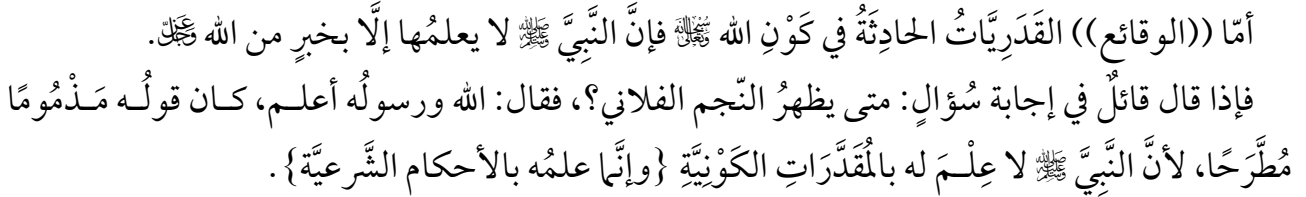 أمّا ((الوقائع)) القَدَرِيَّاتُ الحادِثَةُ في كَوْنِ الله سُبْحَانَهُ وَتَعَالَى فإنَّ النَّبِيَّ ﷺ لا يعلمُها إلَّا بخبرٍ من الله عَزَّوَجَلَّ.
فإذا قال قائلٌ في إجابة سُؤالٍ: متى يظهرُ النّجم الفلاني؟، فقال: الله ورسولُه أعلـم، كـان قولُـه مَـذْمُومًا
مُطَّرَحًا، لأنَّ النَّبِيَّ ﷺ لا عِلْـمَ له بالمُقَدَّرَاتِ الكَوْنِيَّةِ {وإنَّما علمُه بالأحكام الشَّرعيَّة}.